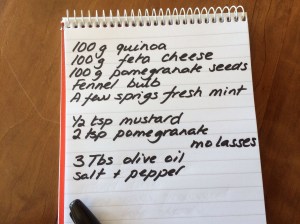 100g quinoa
100g feta cheese
100g pomegranate seeds
Fennel bulb
A few sprigs fresh mint
½ tsp mustard
2 tsp pomegranate
molasses
3 Tbs olive oil
salt + pepper